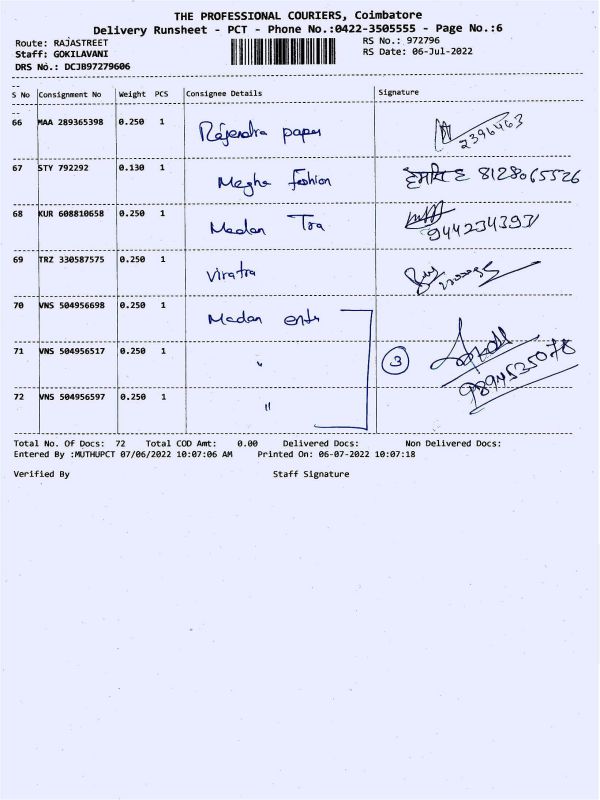 THE PROFESSIONAL COURIERS, Coimbatore
Delivery Runsheet - PCT - Phone No.:0422-3505555 - Page No.:6
Route: RAJASTREET
RS No.: 972796
Staff: GOKILAVANI
RS Date: 06-Jul-2022
DRS No.: DCJB97279606
S No Consignment No Weight PCS Consignee Details Signature
66 MAA 289365398 0.250 1 Rajendra paper 2396463
67 STY 792292 0.130 1 Megha fashion 8128065526
68 KUR 608810658 0.250 1 Madan Tra 944234393
69 TRZ 330587575 0.250 1 Viratra
70 VNS 504956698 0.250 1 Madan entr
71 VNS 504956517 0.250 1 " 3 9894535078
72 VNS 504956597 0.250 1 "
Total No. Of Docs: 72 Total COD Amt: 0.00 Delivered Docs: Non Delivered Docs:
Entered By :MUTHUPCT 07/06/2022 10:07:06 AM Printed On: 06-07-2022 10:07:18
Verified By Staff Signature